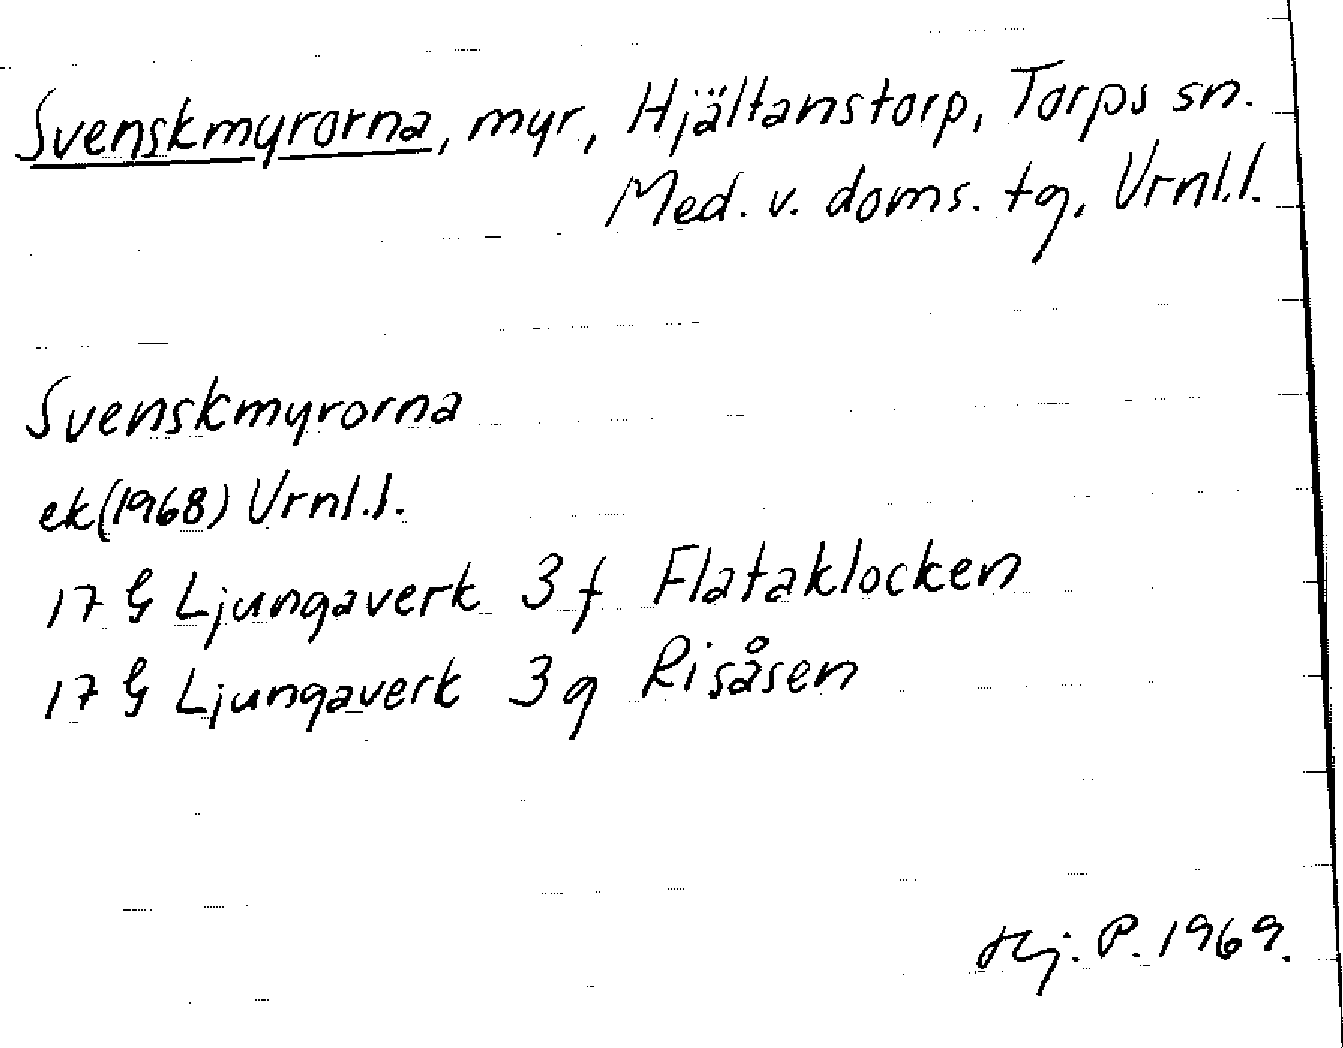 Svenskmyrorna, myr, Hjältanstorp, Torps sn.
Med. v. doms. tg, Vrnl.l.
Svenskmyrorna
ek(1968) Vrnl.l.
17 G Ljungaverk 3 f Flataklocken
17 G Ljungaverk 3 g Risåsen
Hj. P. 1969.